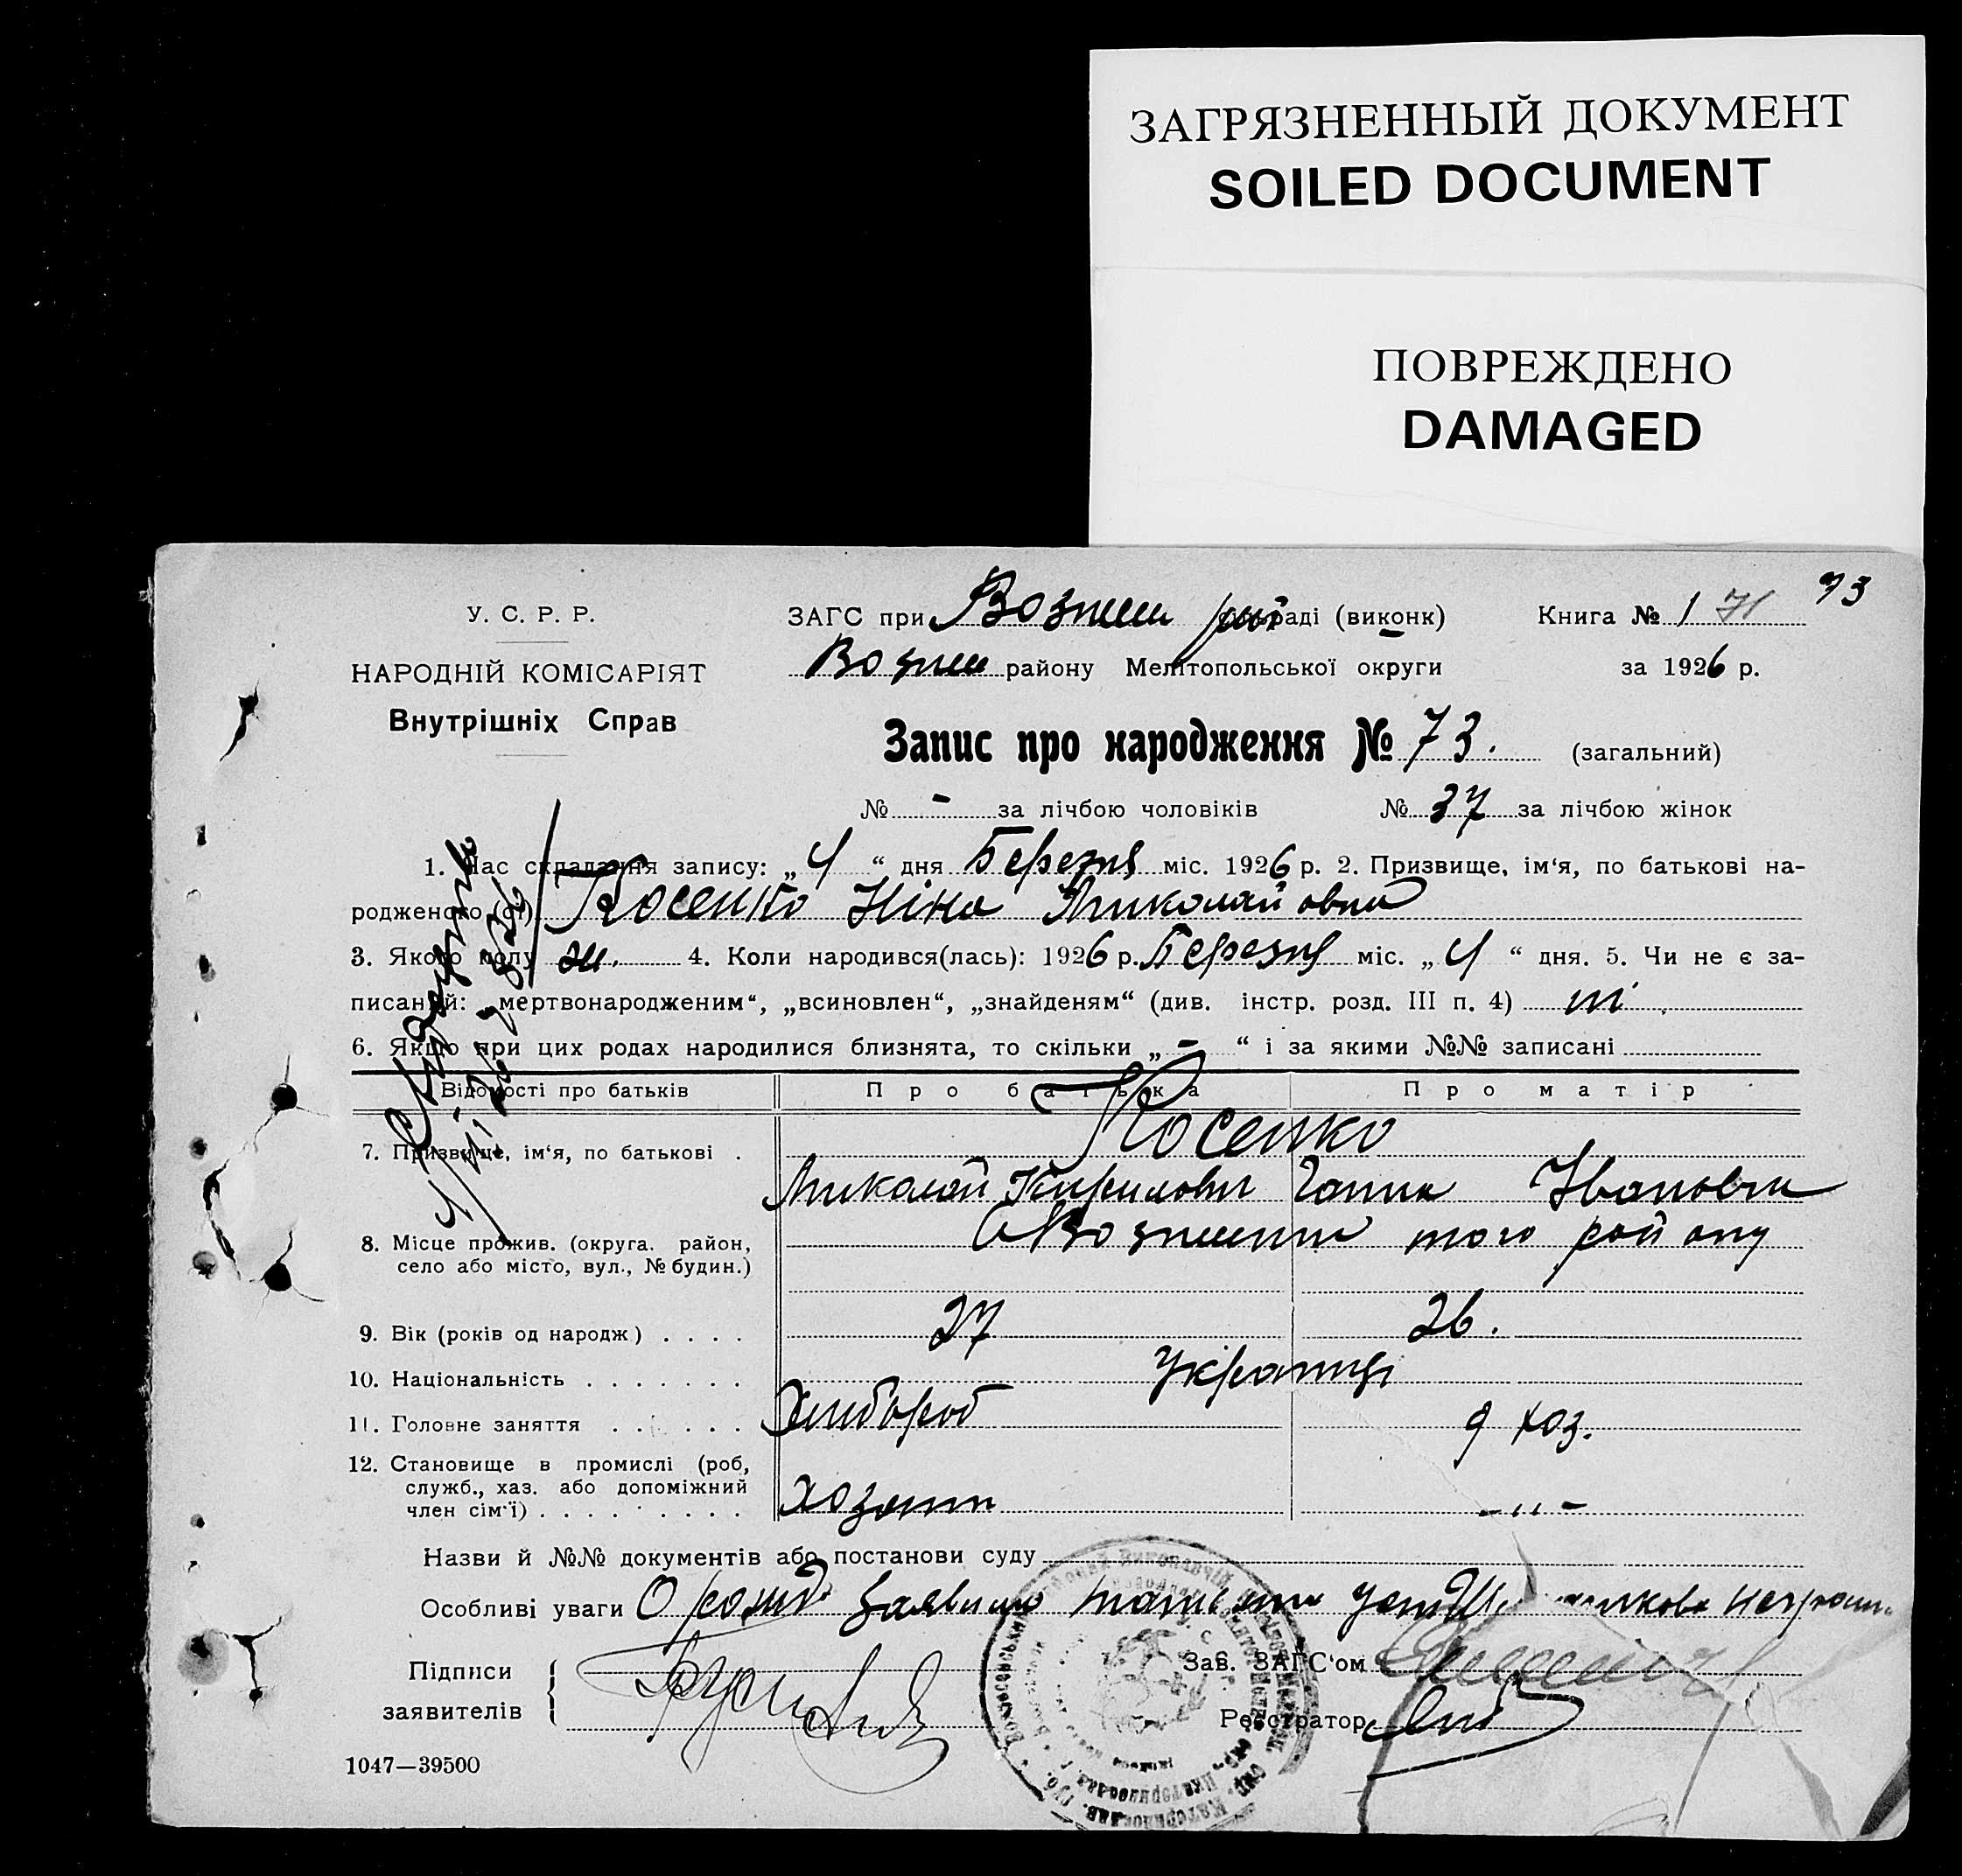 ЗАГРЯЗНЕННЫЙ ДОКУМЕНТ
SOILED DOCUMENT
ПОВРЕЖДЕНО
DAMAGED
73
У. С. Р. Р.
НАРОДНІЙ КОМІСАРІЯТ
Внутрішніх Справ
ЗАГС при Вознес рай раді (виконк) Книга № 1 71
Вознес району Мелітопольської округи за 1926 р.
Запис про народження № 73. (загальний)
№ - за лічбою чоловіків № 37 за лічбою жінок
1. Час складання запису: „4“ дня Березня міс. 1926 р. 2. Призвище, ім‘я, по батькові на-
родженого (ої) Косенко Ніна Миколайовна
3. Якого полу ж. 4. Коли народився(лась): 1926 р. Березня міс. „4“ дня. 5. Чи не є за-
писаний: „мертвонародженим“, „всиновлен“, „знайденям“ (див. інстр. розд. III п. 4) ні
6. Якщо при цих родах народилися близнята, то скільки „-“ і за якими №№ записані
Відомості про батьків Про батька Про матір
Косенко
7. Призвище, ім‘я, по батькові . Миколай Кирилович Ганна Івановна
8. Місце прожив. (округа. район, село або місто, вул., № будин.) того району
9. Вік (років од народж) . . . . 27 26.
10. Національність . . . . . . . Українці
11. Головне заняття . . . . . . Хлібороб д хоз.
12. Становище в промислі (роб, служб., хаз. або допоміжний член сім‘ї) . . . . . . . . хозяин -„-
Назви й №№ документів або постанови суду
Особливі уваги О рожд заявила
Підписи
заявителів
Зав. ЗАГС‘ом
Реєстратор
1047—39500